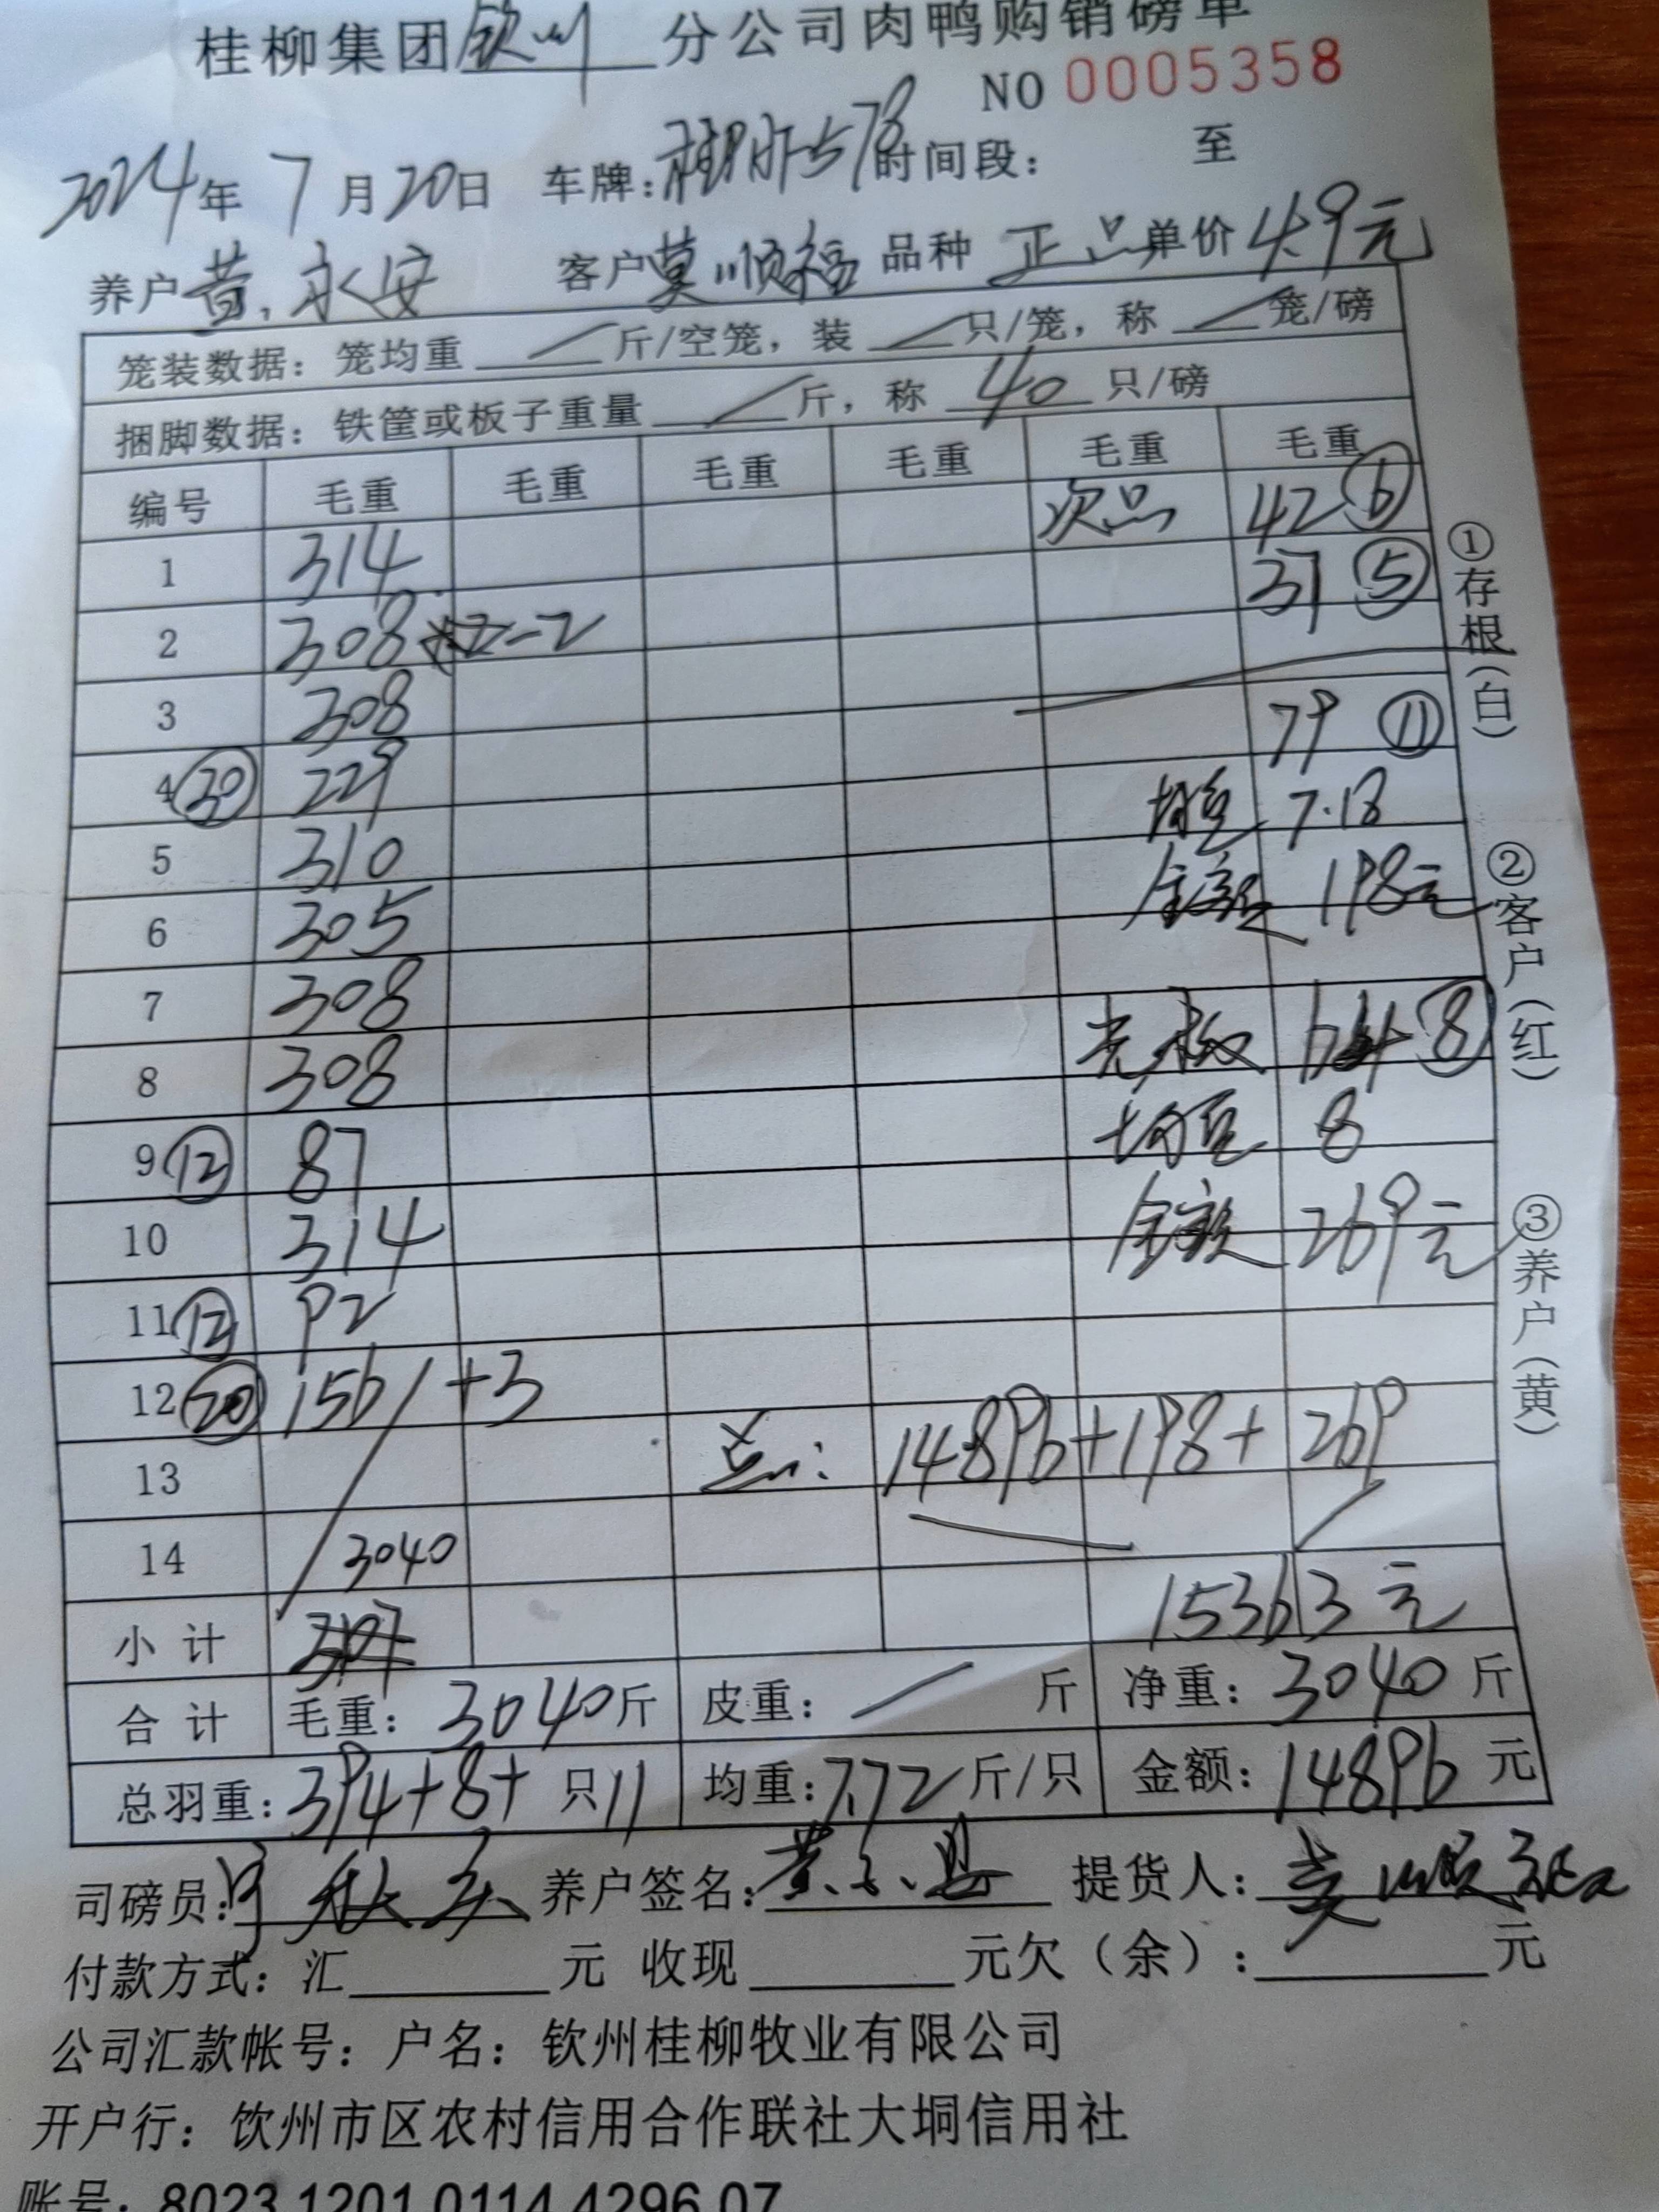 桂柳集团钦州分公司肉鸭购销磅单
NO 0005358
2024年7月20日 车牌: 578 时间段: 至
养户黄永安 客户莫顺福 品种 正品 单价4.9元
笼装数据: 笼均重 / 斤/空笼, 装 / 只/笼, 称 / 笼/磅
捆脚数据: 铁筐或板子重量 / 斤, 称 40 只/磅
编号 毛重 毛重 毛重 毛重 毛重 毛重
次品 42 ⑥
1 314 37 ⑤
2 308 -2
3 308 79 ⑪
4 ㉚ 229 均重 7.18
5 310 金额 198元
6 305
7 308 64 ⑧
8 308 均重 8
9 ⑫ 87 金额 269元
10 314
11 ⑫ 92
12 ⑳ 156 / +3
13 总: 14896+198+269
14 3040
小计 15363元
合计 毛重: 3040斤 皮重: / 斤 净重: 3040斤
总羽重: 394+8+ 只11 均重: 7.72斤/只 金额: 14896元
①存根(白)
②客户(红)
③养户(黄)
司磅员: 养户签名: 提货人: 莫顺福
付款方式: 汇 元 收现 元欠(余): 元
公司汇款帐号: 户名: 钦州桂柳牧业有限公司
开户行: 钦州市区农村信用合作联社大垌信用社
账号: 8023 1201 0114 4296 07